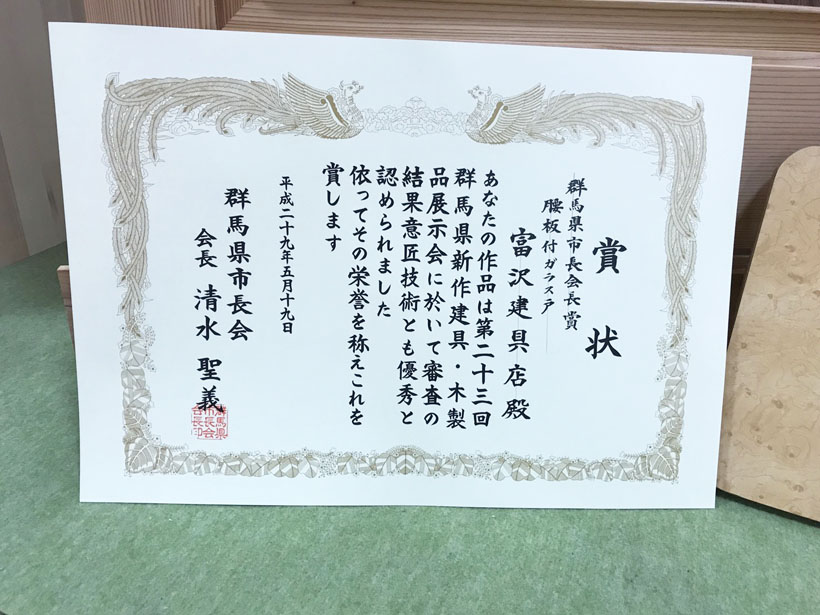 賞状
群馬県市長会長賞
腰板付ガラス戸
富沢建具店殿
あなたの作品は第二十三回
群馬県新作建具・木製
品展示会に於いて審査の
結果意匠技術とも優秀と
認められました
依ってその栄誉を称えこれを
賞します
平成二十九年五月十九日
群馬県市長会
会長 清水聖義
群馬県
市長会
会長印